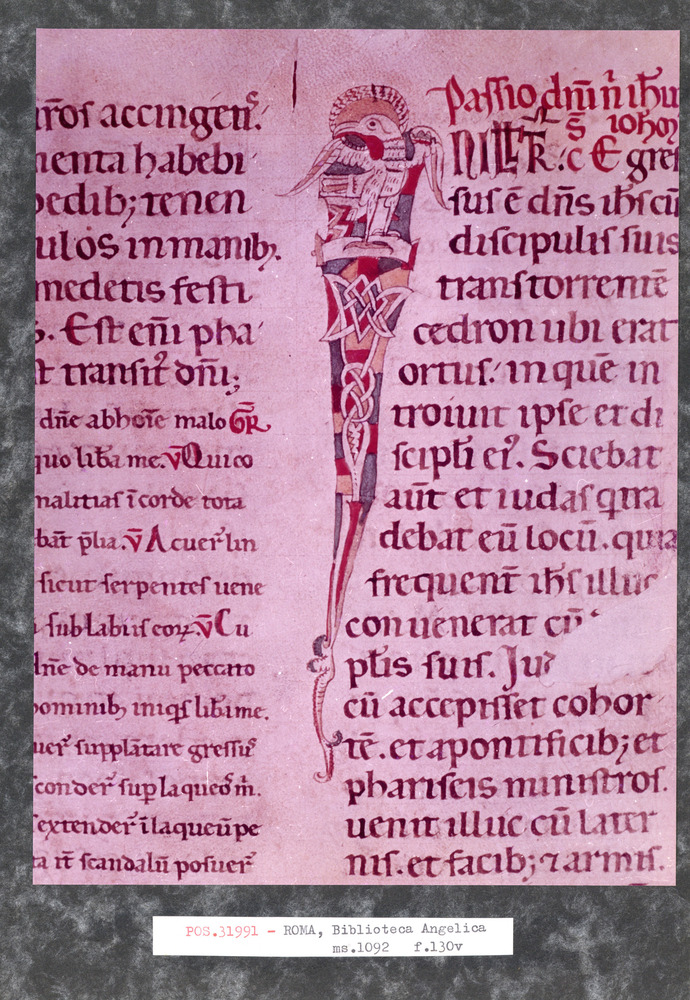 accingen᷒t᷒.
habebi
tenen
ulos in manib;.
medetis festi
. Est eni pha
transit᷒ dn̄i;
dn̄e ab hoīe malo GR
quo liba me. v̄ Qui co
in corde tota
v̄ Acuer᷒ lin
sicut serpentes uene
sub labiis eoꝝ v̄ Cu
de manu peccato
iniqi liba me.
supplantare gressus᷒
conder᷒ sup laqueō m̄.
extender᷒ ī laqueū pe
ta it᷒ scandalū posuer᷒
Passio dn̄i n̄i ih̄u
s̄ ioh̄
E gres
sus ē dn̄s ih̄s cū
discipulis suis
trans torrentē
cedron ubi erat
ortus. in quē in
troiuit ipse et di
scipli ei᷒. Sciebat
aūt et iudas q tra
debat eū locū. quia
frequent̄ ih̄s illuc
conuenerat cū
plis suis.
cū accepisset cohor
tē. et a pontificib; et
phariseis ministros.
uenit illuc cū later
nis. et facib; ⁊ armis.
POS.31991 - ROMA, Biblioteca Angelica
ms.1092 f.130v